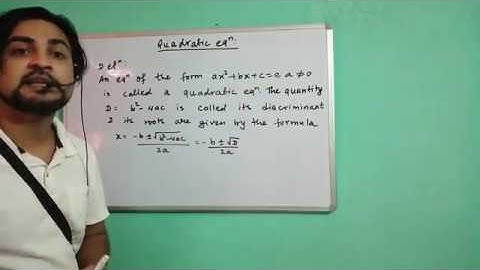 Quadratic eqⁿ.
Defⁿ:
An eqⁿ of the form ax²+bx+c=0 a≠0
is called a quadratic eqⁿ. The quantity
D= b²-4ac is called its discriminant
& its roots are given by the formula
x= -b±√b²-4ac/2a = -b±√D/2a